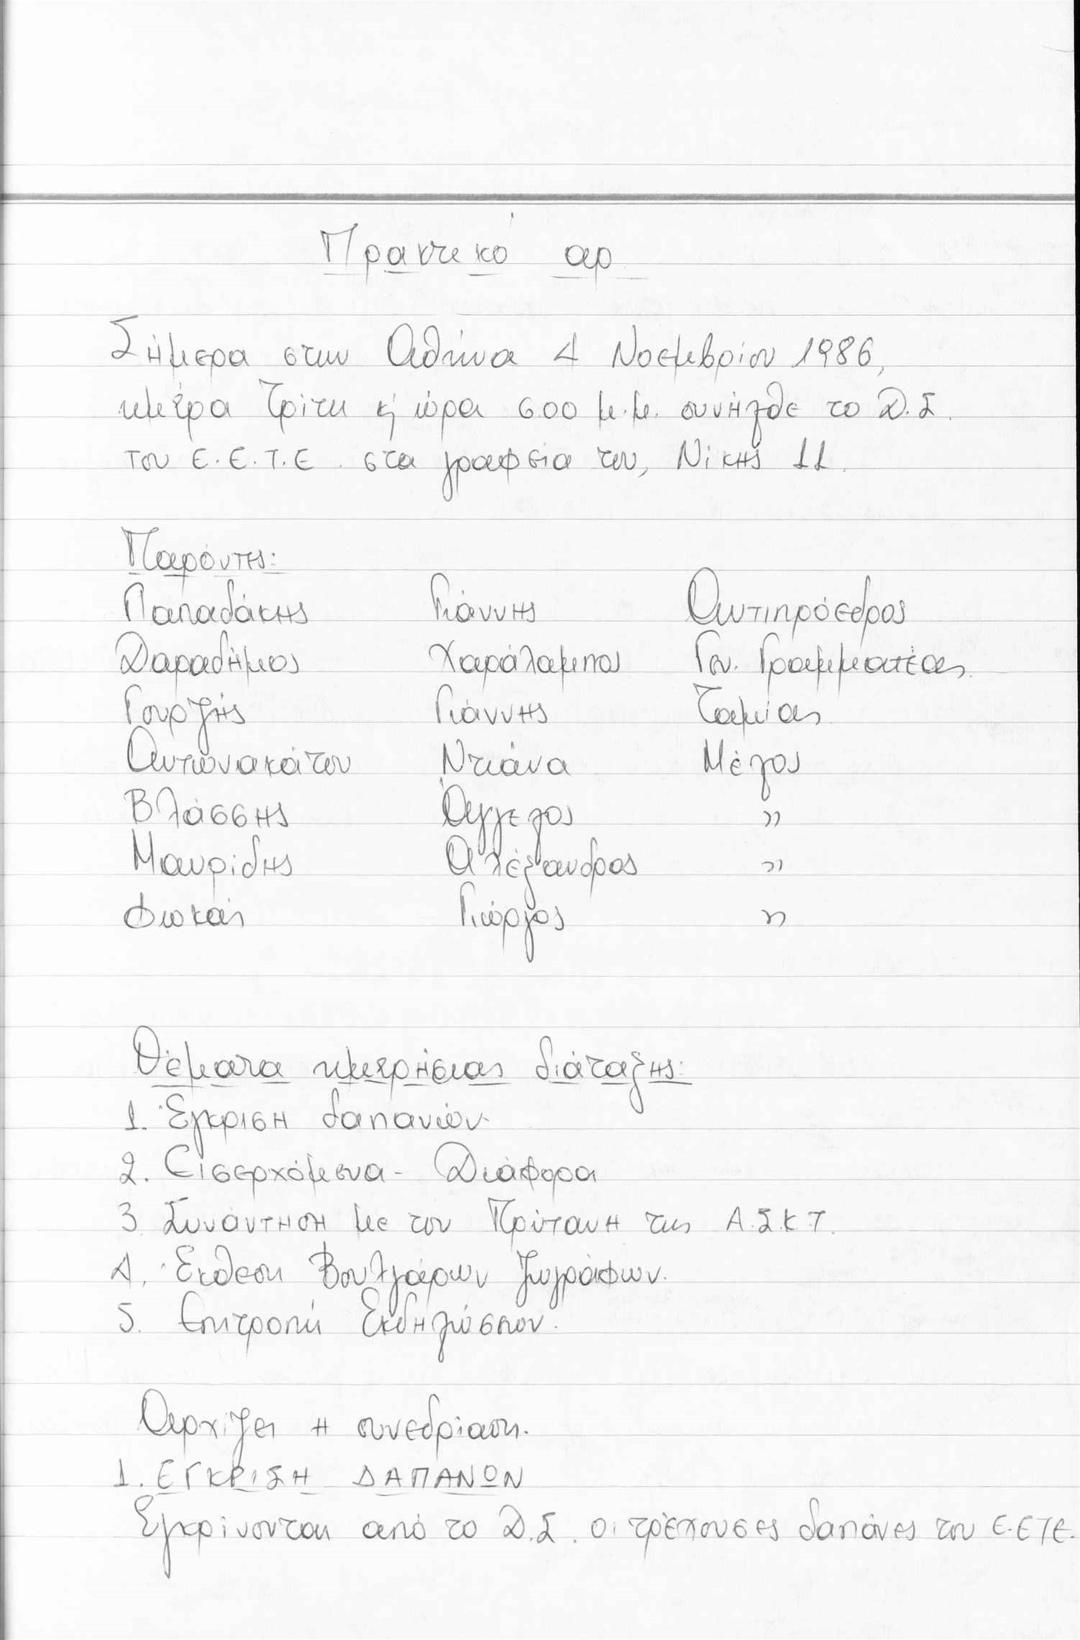 Πρακτικό αρ
Σήμερα στην Αθήνα 4 Νοεμβρίου 1986,
ημέρα Τρίτη κ' ώρα 6.00 μ.μ. συνήλθε το Δ.Σ.
του Ε.Ε.Τ.Ε. στα γραφεία του, Νίκης 11.
Παρόντες:
Παπαδάκης Γιάννης Αντιπρόεδρος
Δαραδήμος Χαράλαμπος Γεν. Γραμματέας
Γουρζής Γιάννης Ταμίας
Αντωνακάτου Ντιάνα Μέλος
Βλάσσης Άγγελος "
Μαυρίδης Αλέξανδρος "
Φωκάς Γιώργος "
Θέματα ημερήσιας διάταξης:
1. Έγκριση δαπανών
2. Εισερχόμενα - Διάφορα
3. Συνάντηση με τον Πρύτανη της Α.Σ.Κ.Τ.
4. Έκθεση Βουλγάρων ζωγράφων.
5. Επιτροπή Εκδηλώσεων.
Αρχίζει η συνεδρίαση.
1. ΕΓΚΡΙΣΗ ΔΑΠΑΝΩΝ
Εγκρίνονται από το Δ.Σ. οι τρέχουσες δαπάνες του Ε.ΕΤΕ.